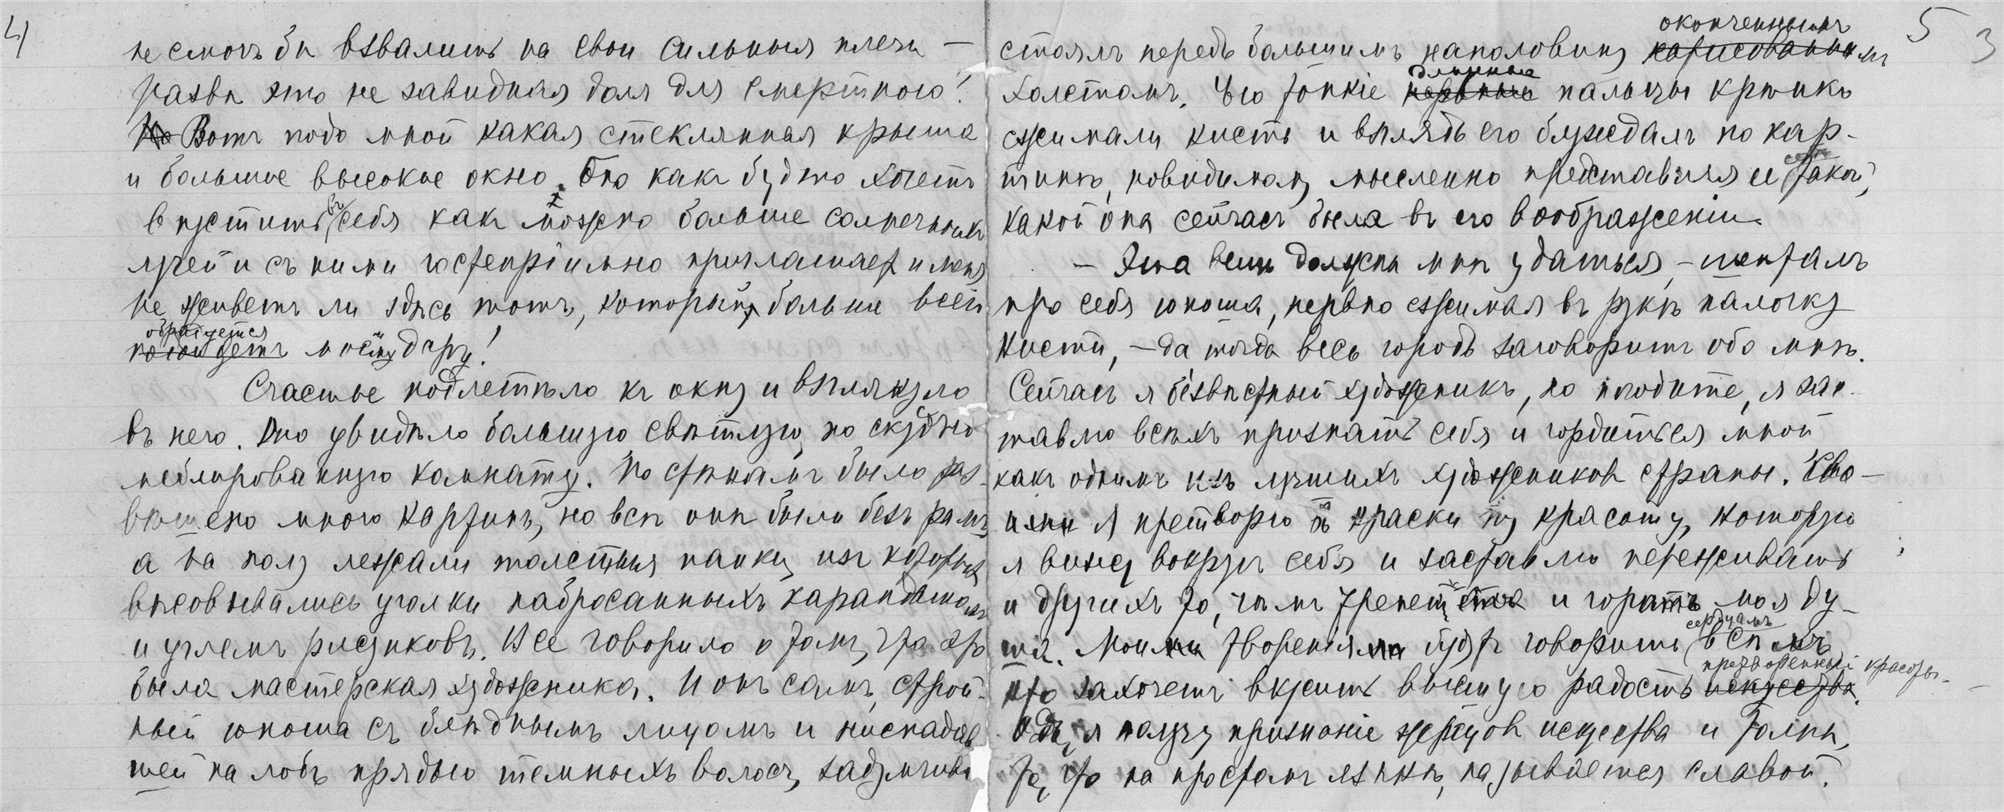 4
не смогъ бы взвалить на свои сильныя плечи —
развѣ это не завидная доля для смертного!
Но Вотъ подо мной какая стеклянная крыша
и большое высокое окно. Оно какъ будто хочетъ
впустить въ себя какъ можно больше солнечныхъ
лучей и съ ними гостепріимно приглашает и меня
не живетъ ли здѣсь тотъ, который больше всѣхъ
обрадуется
моему дару!
Счастье подлетѣло къ окну и взглянуло
въ него. Оно увидѣло большую свѣтлую, но скудно
меблированную комнату. По стѣнамъ было раз-
вѣшено много картинъ, но всѣ онѣ были безъ рамъ
а на полу лежали толстыя папки, изъ которыхъ
высовывались уголки набросанныхъ карандашомъ
и углемъ рисунковъ. Все говорило о томъ, что это
была мастерская художника. И онъ самъ, строй-
ный юноша съ блѣднымъ лицомъ и ниспадав
шей на лобъ прядью темныхъ волосъ, задумчиво
5 3
оконченнымъ
стоялъ передъ большимъ наполовину нарисованнымъ
длинные
холстомъ. Его тонкіе нервные пальцы крѣпко
сжимали кисть и взглядъ его блуждалъ по кар-
тинѣ, повидимому мысленно представляя ее себѣ такой,
какой она сейчасъ была въ его воображеніи.
— Эта вещь должна мнѣ удаться, — шепталъ
про себя юноша, нервно сжимая въ рукѣ палочку
кисти, — да тогда весь городъ заговоритъ обо мнѣ.
Сейчасъ я безвѣстный художникъ, но погодите, я зас-
тавлю всѣхъ признать себя и гордиться мной
какъ однимъ изъ лучшихъ художниковъ страны.
я претворю въ краски ту красоту, которую
я вижу вокругъ себя и заставлю переживать
и другихъ то, чѣмъ трепещетъ и горитъ моя ду-
сердцамъ
ша. Мои творенія будутъ говорить всѣмъ
претворенный красоты.
кто захочетъ вкусить высшую радость искусства.
Я получу признаніе жрецовъ искусства и толпы,
то, что на простомъ языкѣ, называется славой.